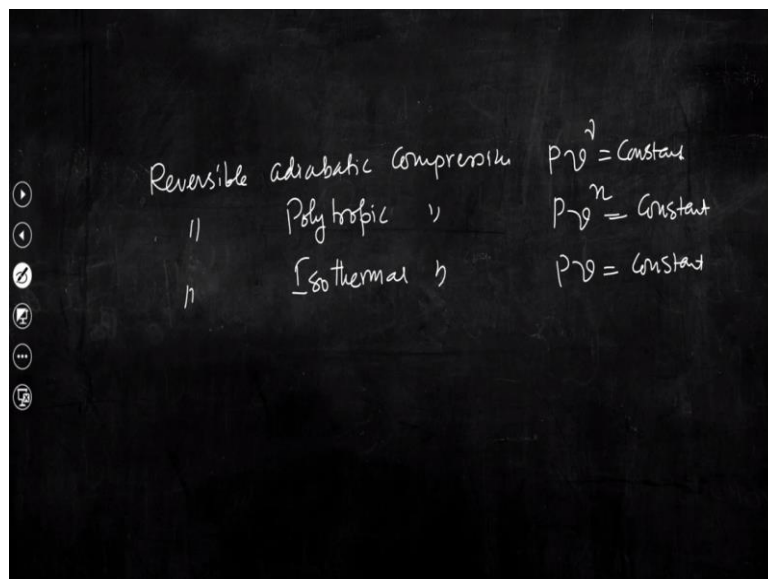 Reversible adiabatic Compression Pv^γ = Constant
〃 Polytropic 〃 Pv^n = Constant
〃 Isothermal 〃 Pv = Constant